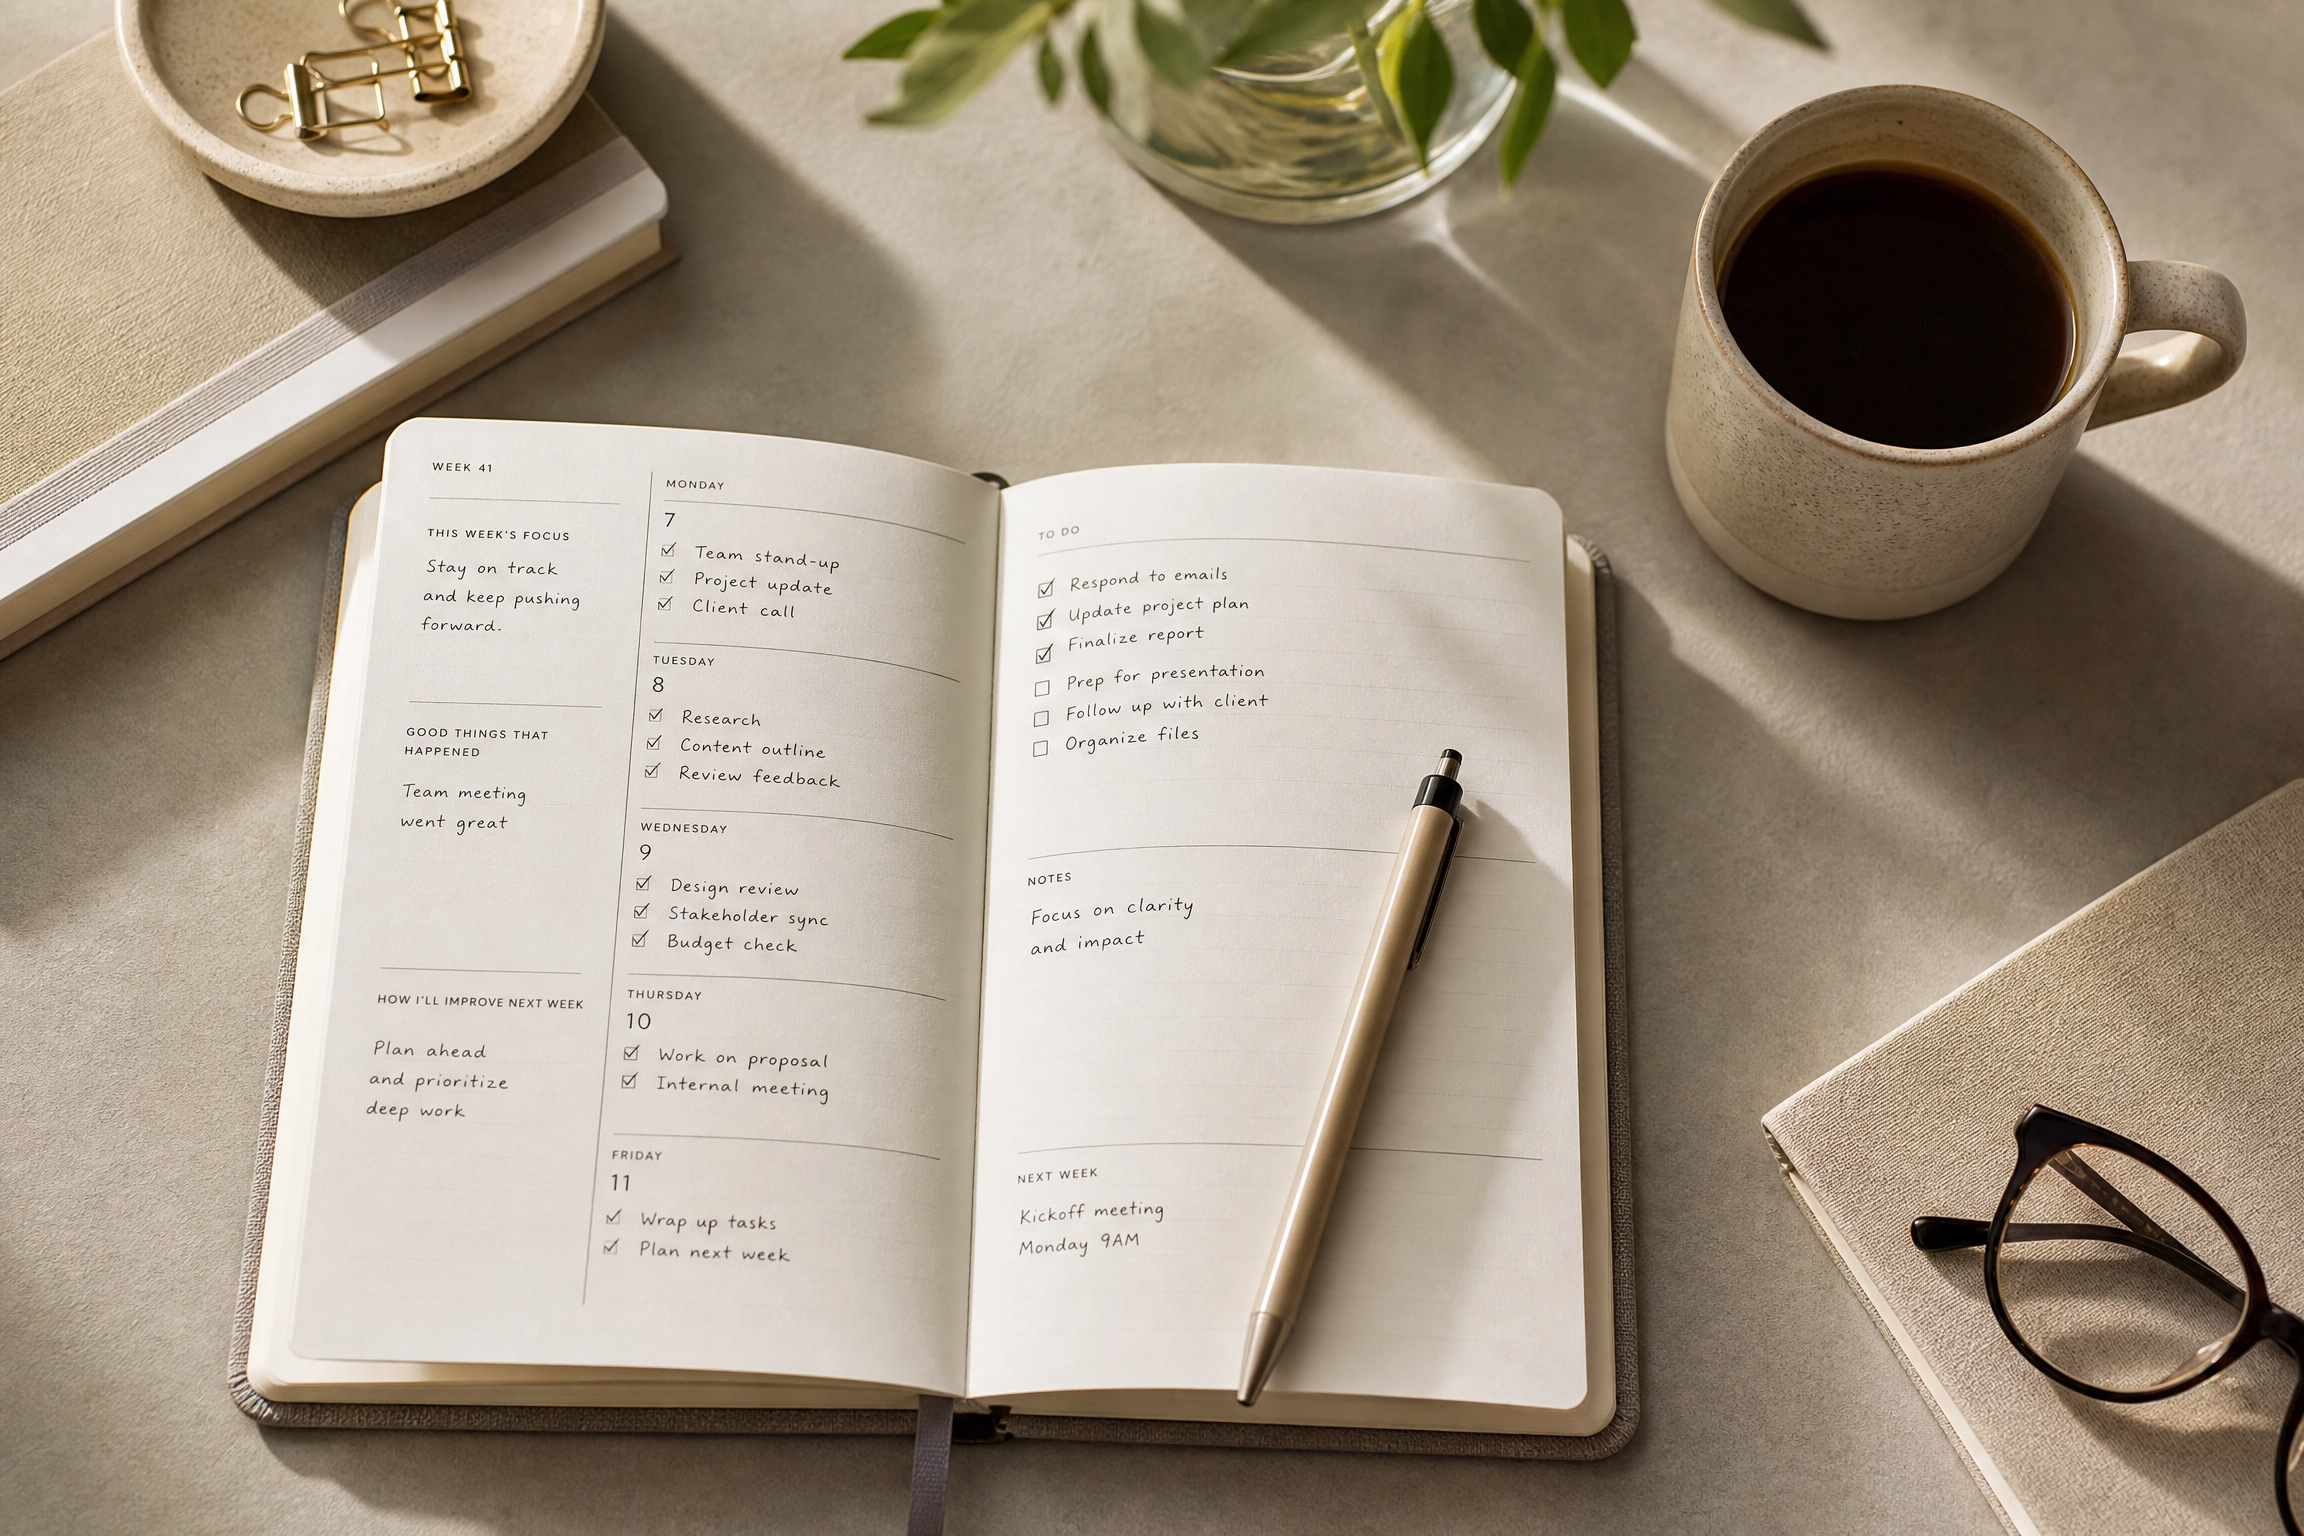 WEEK 41
THIS WEEK'S FOCUS
Stay on track
and keep pushing
forward.
GOOD THINGS THAT
HAPPENED
Team meeting
went great
HOW I'LL IMPROVE NEXT WEEK
Plan ahead
and prioritize
deep work
MONDAY
7
☑ Team stand-up
☑ Project update
☑ Client call
TUESDAY
8
☑ Research
☑ Content outline
☑ Review feedback
WEDNESDAY
9
☑ Design review
☑ Stakeholder sync
☑ Budget check
THURSDAY
10
☑ Work on proposal
☑ Internal meeting
FRIDAY
11
☑ Wrap up tasks
☑ Plan next week
TO DO
☑ Respond to emails
☑ Update project plan
☑ Finalize report
☐ Prep for presentation
☐ Follow up with client
☐ Organize files
NOTES
Focus on clarity
and impact
NEXT WEEK
Kickoff meeting
Monday 9AM